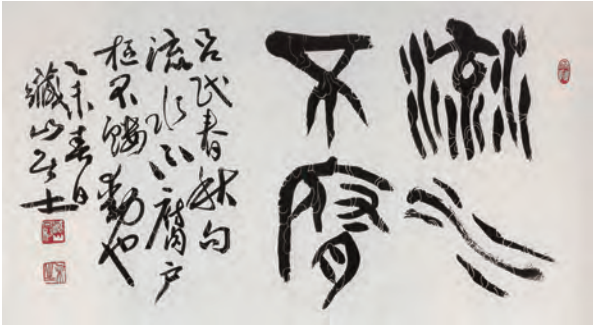 流水
不腐
吕氏春秋句
流水不腐户
枢不螻動也
乙未春日
山居士